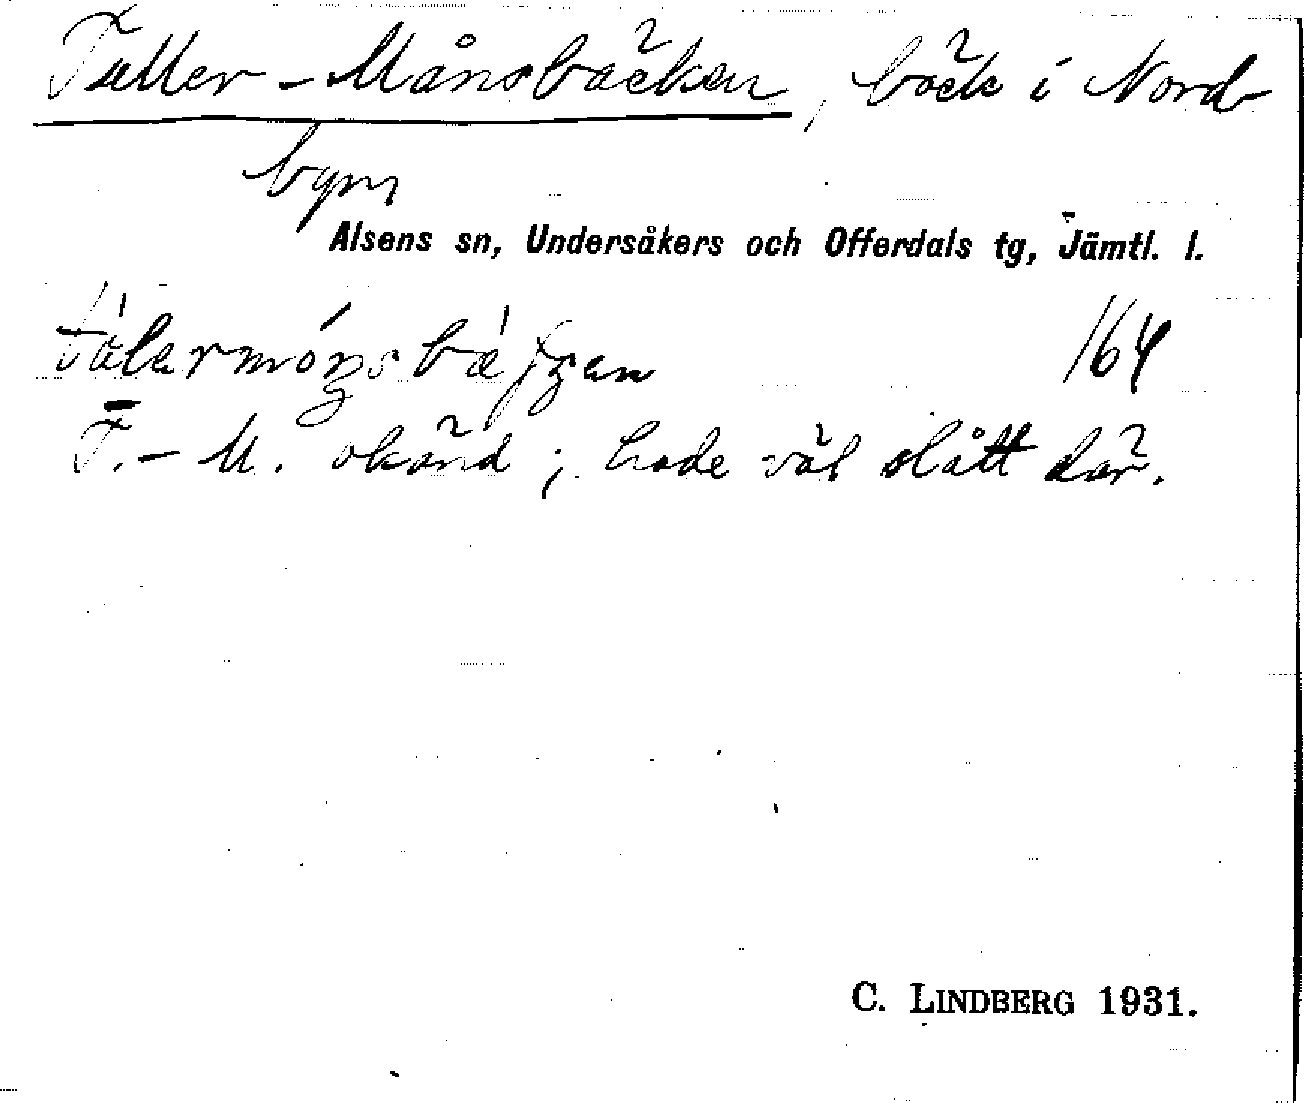 Tuller-Månsbäcken, bäck i Nord-
byn
Alsens sn, Undersåkers och Offerdals tg, Jämtl. l.
164
T.-M. okänd; hade väl slått där.
C. LINDBERG 1931.